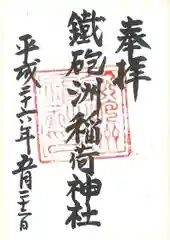 奉拝
鐵砲洲稲荷神社
平成二十六年五月二十二日